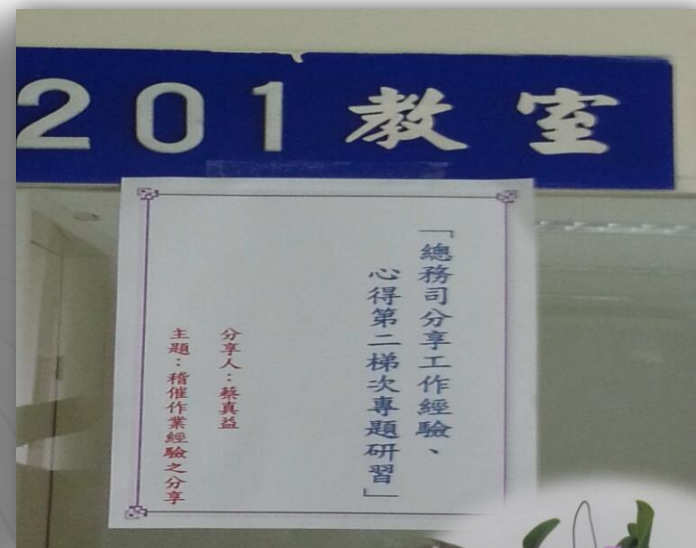 201教室
「總務司分享工作經驗、
心得第二梯次專題研習」
分享人：蔡真益
主題：稽催作業經驗之分享